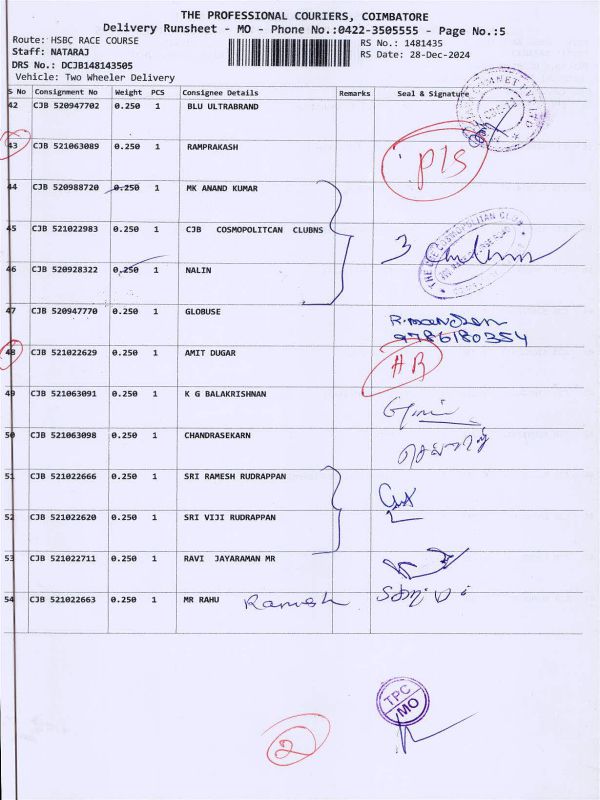 THE PROFESSIONAL COURIERS, COIMBATORE
Delivery Runsheet - MO - Phone No.:0422-3505555 - Page No.:5
Route: HSBC RACE COURSE
Staff: NATARAJ
DRS No.: DCJB148143505
Vehicle: Two Wheeler Delivery
RS No.: 1481435
RS Date: 28-Dec-2024
S No Consignment No Weight PCS Consignee Details Remarks Seal & Signature
42 CJB 520947702 0.250 1 BLU ULTRABRAND
43 CJB 521063089 0.250 1 RAMPRAKASH PIS
44 CJB 520988720 0.250 1 MK ANAND KUMAR
45 CJB 521022983 0.250 1 CJB COSMOPOLITCAN CLUBNS 3
46 CJB 520928322 0.250 1 NALIN
47 CJB 520947770 0.250 1 GLOBUSE
9786180354
48 CJB 521022629 0.250 1 AMIT DUGAR
49 CJB 521063091 0.250 1 K G BALAKRISHNAN
50 CJB 521063098 0.250 1 CHANDRASEKARN
51 CJB 521022666 0.250 1 SRI RAMESH RUDRAPPAN
52 CJB 521022620 0.250 1 SRI VIJI RUDRAPPAN
53 CJB 521022711 0.250 1 RAVI JAYARAMAN MR
54 CJB 521022663 0.250 1 MR RAHU Ramesh
TPC
MO
2